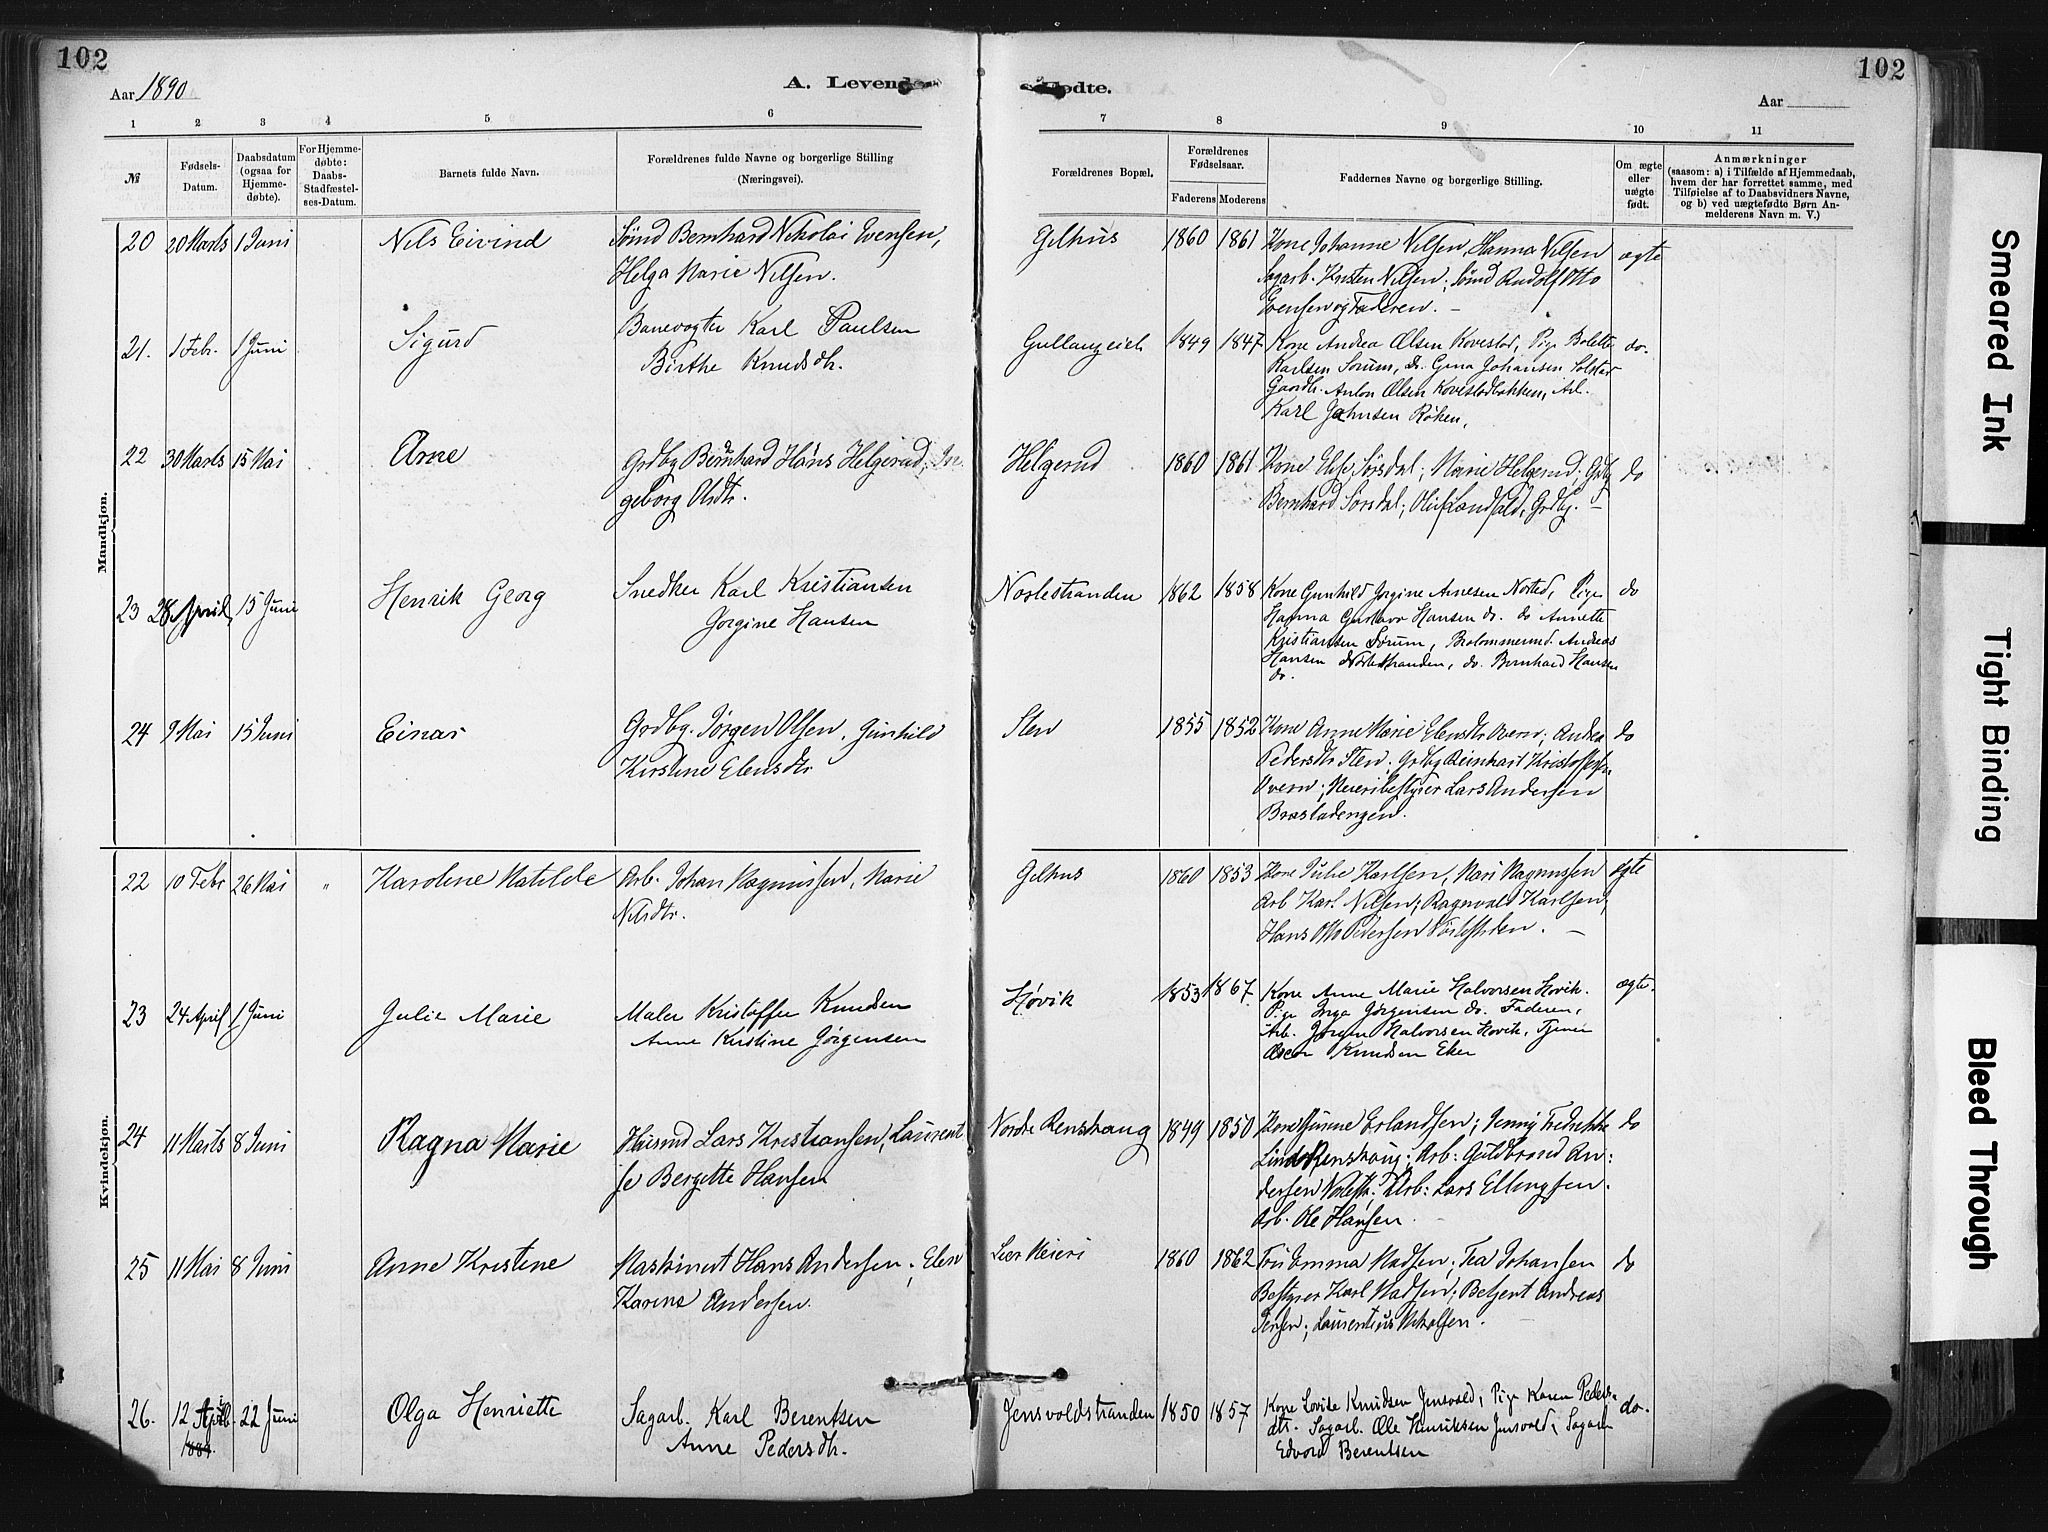 102
Aar 1890
A. Levende
Fødte.
102
Aar
1 2 3 4 5 6 7 8 9 10 11
№
Fødsels-Datum.
Daabsdatum (ogsaa for Hjemmedøbte).
For Hjemmedøbte: Daabs-Stadfæstelses-Datum.
Barnets fulde Navn.
Forældrenes fulde Navne og borgerlige Stilling (Næringsvei).
Forældrenes Bopæl.
Forældrenes Fødselsaar.
Faderens Moderens
Faddernes Navne og borgerlige Stilling.
Om ægte eller uægte født.
Anmærkninger
(saasom: a) i Tilfælde af Hjemmedaab, hvem der har forrettet samme, med Tilføielse af to Daabsvidners Navne, og b) ved uægtefødte Børn Anmelderens Navn m. V.)
Mandkjøn.
20 20 Marts 1 Juni Nils Eivind Sømd Bernhard Nikolai Evensen, Gilhus 1860 1861 Kone Johanne Nilsen, Hanna Nilsen ægte
Helga Marie Nilsen. Sagarb. Kristen Nilsen; Sømd Rudolf Otto
Evensen og Faderen. –
21. 1 Febr. 1 Juni Sigurd Banevogter Karl Paulsen 1849 1847 Kone Andrea Olsen Kovestad, Pige Bolette do.
Birthe Knudsdtr. Karlsen Sørum, do. Gina Johansen Solstad
Gaardbr. Anton Olsen Kovestadbakken, Arb.
Karl Johnsen Røken,
22 30 Marts 15 Mai Arne Grdbg Bernhard Hans Helgerud, In Helgerud 1860 1861 Kone Else Sørsdal; Marie Helgerud; Grdbg do
geborg Olsdtr. Bernhard Sørsdal; Oluf Landfald, Grdbg. –
23 28 April, 15 Juni Henrik Georg Snedker Karl Kristiansen Nostestranden 1862 1858 Kone Gunhild Jorgine Arnesen Nøsted, Pige do
Jorgine Hansen Hanna Gustava Hansen do. do Annette
Kristiansen Sørum, Andreas
Hansen Nostestranden, do. Bernhard Hansen
do.
24 9 Mai 15 Juni Einar Grdbg. Jørgen Olsen, Gunhild Sten 1855 1852 Kone Anne Marie Elensdtr Overn; Andrea do
Kirstine Elensdtr Pedersdtr Sten, Grdbg Reinhart Kristoffersen
Overn; Meieribestyrer Lars Andersen
Brastadengen.
Kvindekjøn.
22 10 Febr 26 Mai " Karoline Matilde Arb. Johan Magnussen, Marie Gilhus 1860 1853 Kone Julie Karlsen, Mari Magnussen ægte
Nilsdtr. Arb Karl Nilsen; Ragnvald Karlsen;
Hans Otto Pedersen
23 24 April 1 Juni Julie Marie Maler Kristoffer Knudsen Høvik 1853 1867 Kone Anne Marie Halvorsen Hovik. ægte.
Anne Kirstine Jørgensen Pige Inga Jørgensen do. Faderen,
Arb. Jørgen Halvorsen Hovik, Tjener
Oscar Knudsen Eker
24 11 Marts 8 Juni Ragna Marie Husmd Lars Kristiansen, Laurent Nordre Renskaug 1849 1850 Kone Gunine Erlandsen; Jenny Fredrikke do
se Bergitte Hansen Linds Renskaug; Arb: Guldbrand An:
dersen Nøstestr.; Arb: Lars Ellingsen.
Arb. Ole Hansen.
25 11 Mai 8 Juni Anne Kristine Maskinist Hans Andersen; Elen Lier Meieri 1860 1862 Fru Emma Madsen; Tea Johansen do
Karine Andersen. Bestyrer Karl Madsen; Betjent Andreas
Jensen; Laurentius Mikalsen.
26. 12 April 22 Juni Olga Henriette Sagarb. Karl Berentsen Jensvoldstranden 1850 1857 Kone Lovise Knudsen Jensvold, Pige Karen Peders- do.
1889 Anne Pedersdtr. dtr. Sagarb. Ole Henriksen Jensvold, Sagarb
Edvard Berentsen
Smeared Ink
Tight Binding
Bleed Through